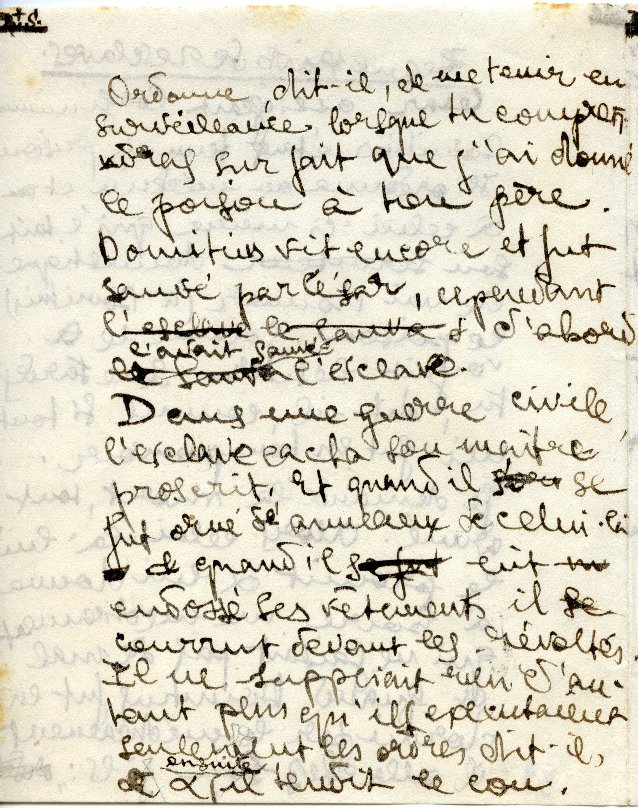 Ordonne dit-il, de me tenir en
surveillance lorsque tu compren-
dras sur fait que j'ai donné
le poison à ton père.
Domitius vit encore et fut
sauvé par César, cependant
l'esclave le sauva d'abord
l'avait sauvé
le sauva l'esclave.
Dans une guerre civile,
l'esclave cacha son maître
proscrit. Et quand il se
fut orné d'anneaux de celui-là
et quand il se fut eût
endossé ses vêtements il se
courrut devant les révoltés.
Il ne suppliait rien d'au-
tant plus qu'ils exécutaient
seulement les ordres dit-il,
ensuite
et il tendit le cou.